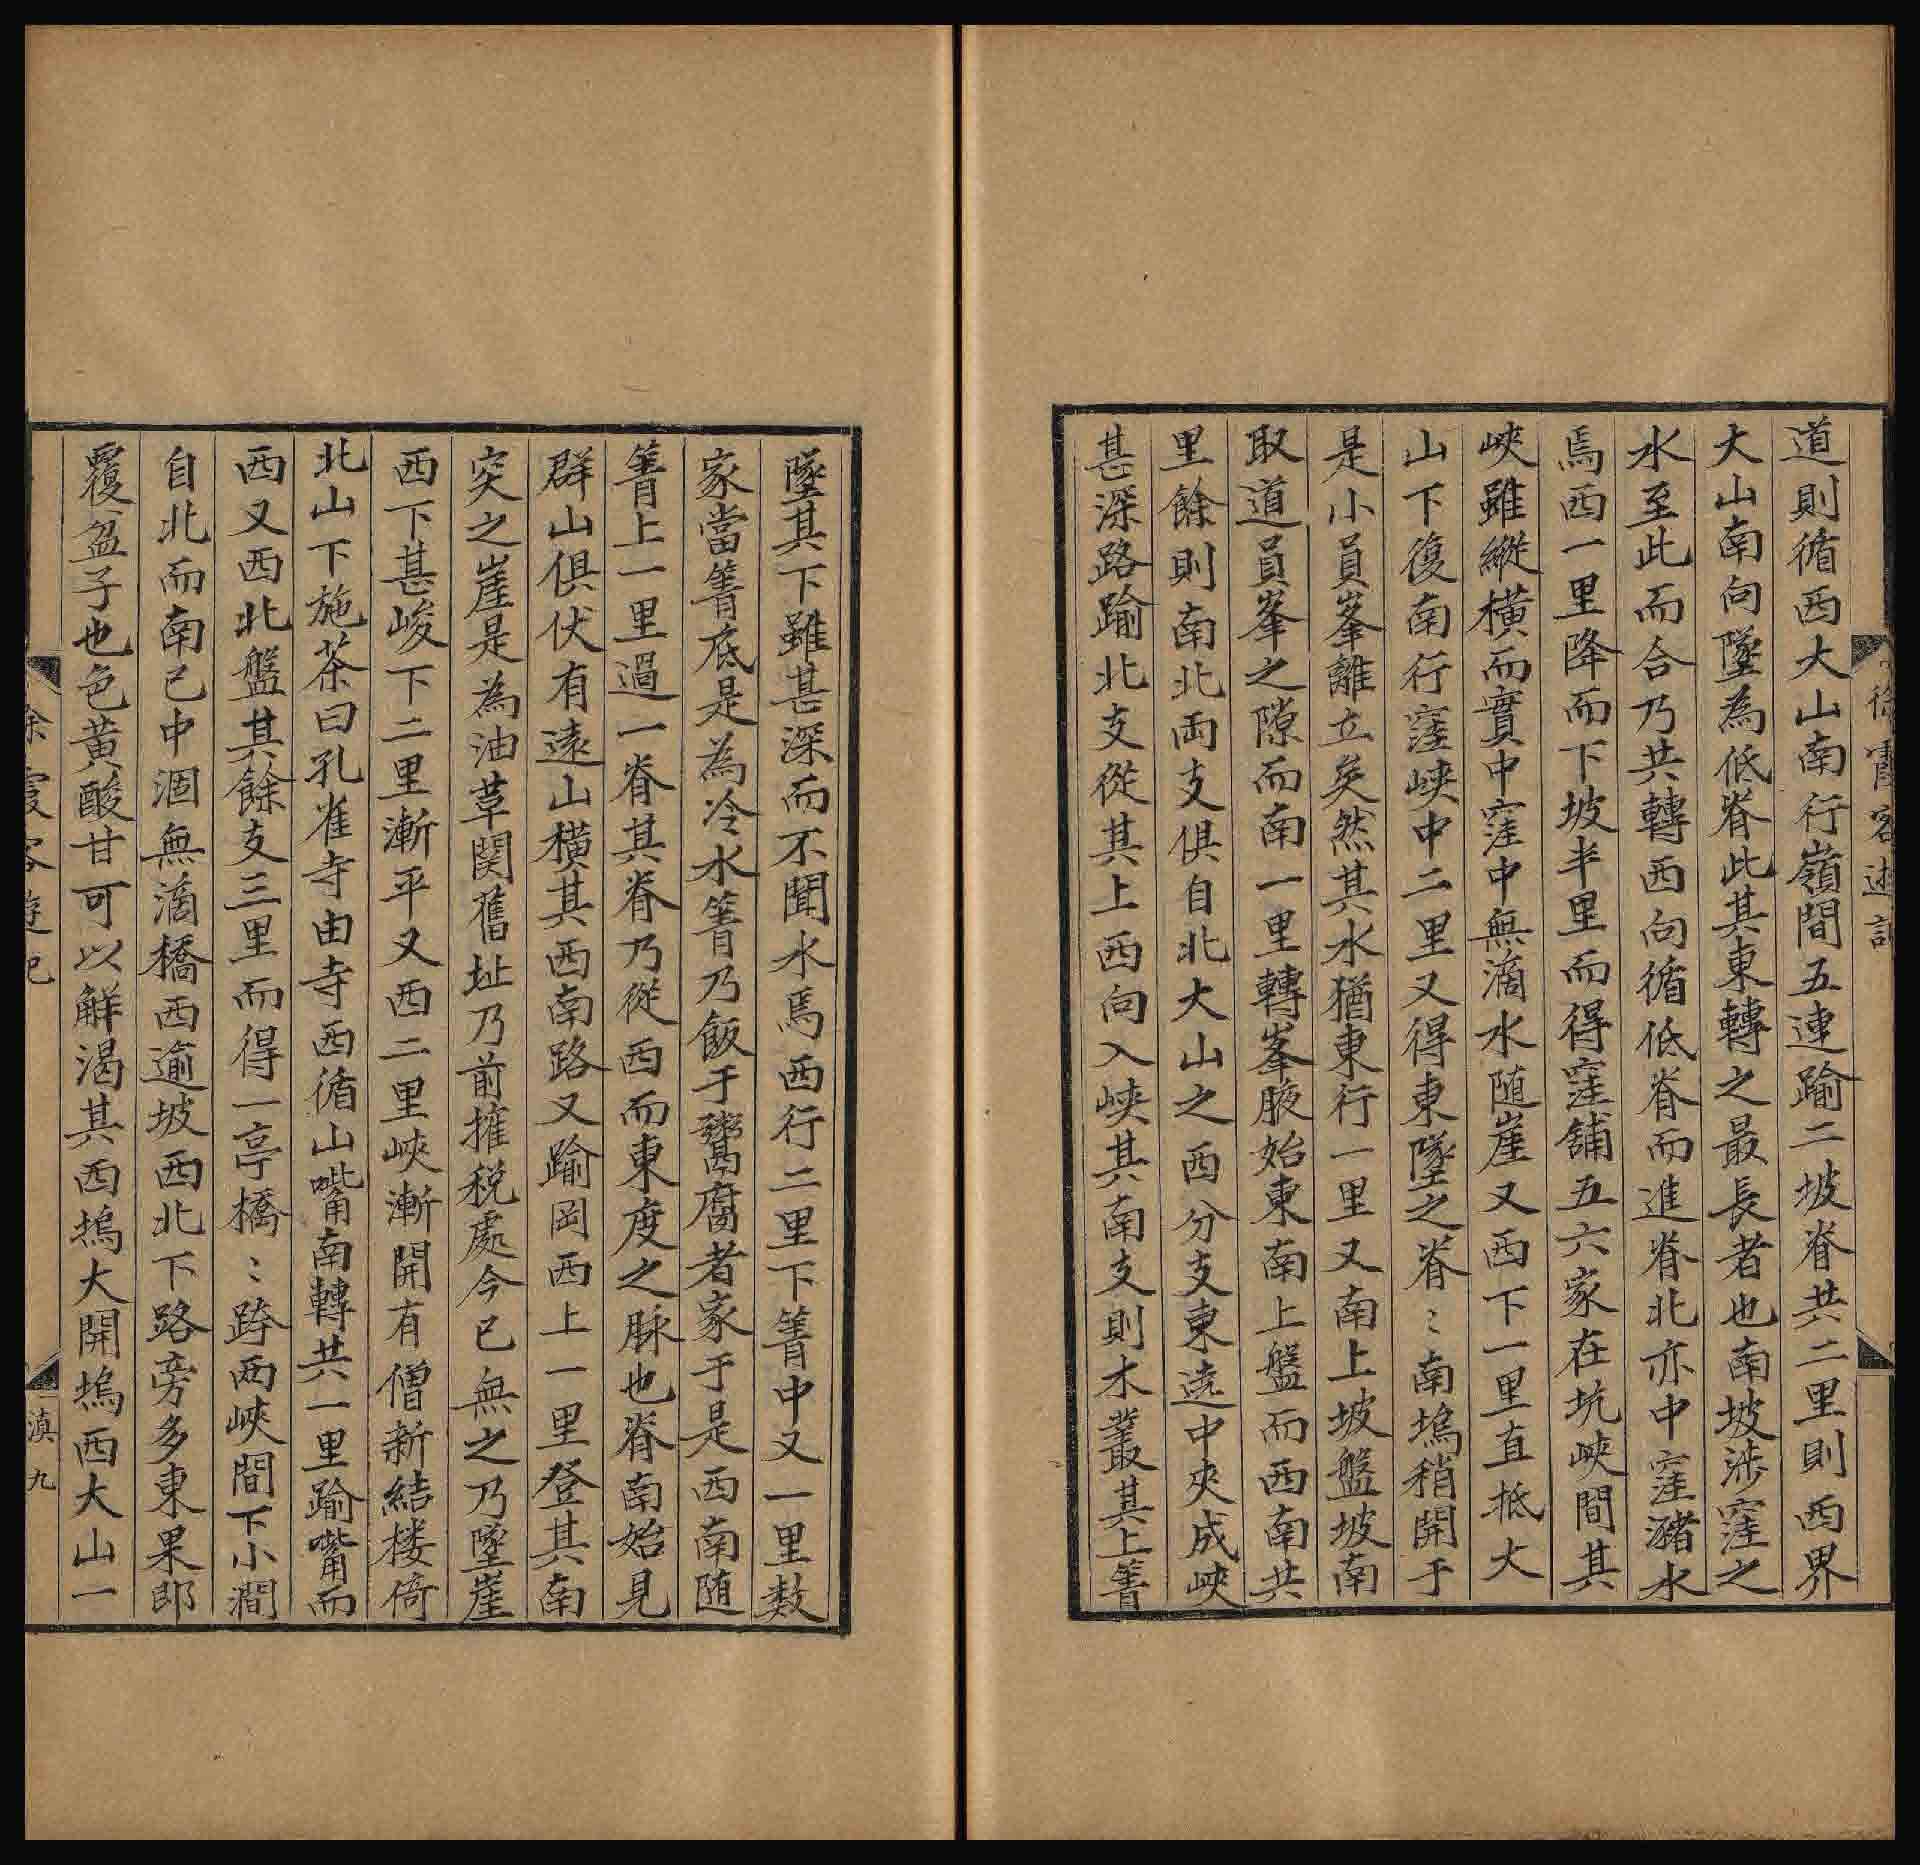 道則循西大山南行嶺間五連踰二坡脊共二里則西界
大山南向墜為低脊此其東轉之最長者也南坡涉窪之
水至此而合乃共轉西向循低脊而進脊北亦中窪瀦水
焉西一里降而下坡半里而得窪舖五六家在坑峽間其
峽雖縱橫而實中窪中無滴水随崖又西下一里直抵大
山下復南行窪峽中二里又得東墜之脊〻南塢稍開于
是小員峯離立矣然其水猶東行一里又南上坡盤坡南
取道員峯之隙而南一里轉峯腋始東南上盤而西南共
里餘則南北兩支俱自北大山之西分支東遶中夾成峽
甚深路踰北支從其上西向入峽其南支則木叢其上箐
墜其下雖甚深而不聞水焉西行二里下箐中又一里数
家當箐底是為冷水箐乃飯于鬻腐者家于是西南随
箐上一里過一脊其脊乃從西而東度之脈也脊南始見
群山俱伏有遠山橫其西南路又踰岡西上一里登其南
突之崖是為油草関舊址乃前擁税處今已無之乃墜崖
西下甚峻下二里漸平又西二里峽漸開有僧新結楼倚
北山下施茶曰孔雀寺由寺西循山嘴南轉共一里踰嘴而
西又西北盤其餘支三里而得一亭橋〻跨兩峽間下小澗
自北而南已中涸無滴橋西逾坡西北下路旁多東果郎
覆盆子也色黃酸甘可以解渴其西塢大開塢西大山一
徐霞客遊記
滇九